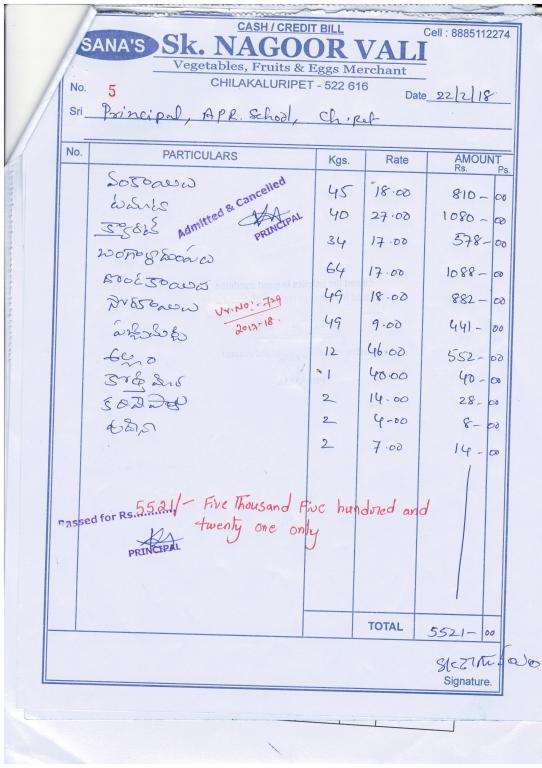 CASH / CREDIT BILL
Cell : 8885112274
SANA'S Sk. NAGOOR VALI
Vegetables, Fruits & Eggs Merchant
CHILAKALURIPET - 522 616
No. 5
Date 22/2/18
Sri Principal, A.P.R. School, Ch.pet
No. PARTICULARS Kgs. Rate AMOUNT
Rs. Ps.
వంకాయలు 45 18.00 810-00
టమోటా 40 27.00 1080-00
క్యారెట్ 34 17.00 578-00
బంగాళాదుంపలు 64 17.00 1088-00
దొండకాయలు 49 18.00 882-00
సొరకాయలు 49 9.00 441-00
పచ్చిమిర్చి 12 46.00 552-00
అల్లం 1 40.00 40-00
కొత్తిమీర 2 14.00 28-00
కరివేపాకు 2 4-00 8-00
పుదీనా 2 7.00 14-00
Admitted & Cancelled
PRINCIPAL
Vr.No:-729
2017-18.
Passed for Rs. 5521/- Five Thousand Five hundred and
twenty one only
PRINCIPAL
TOTAL 5521-00
Signature.